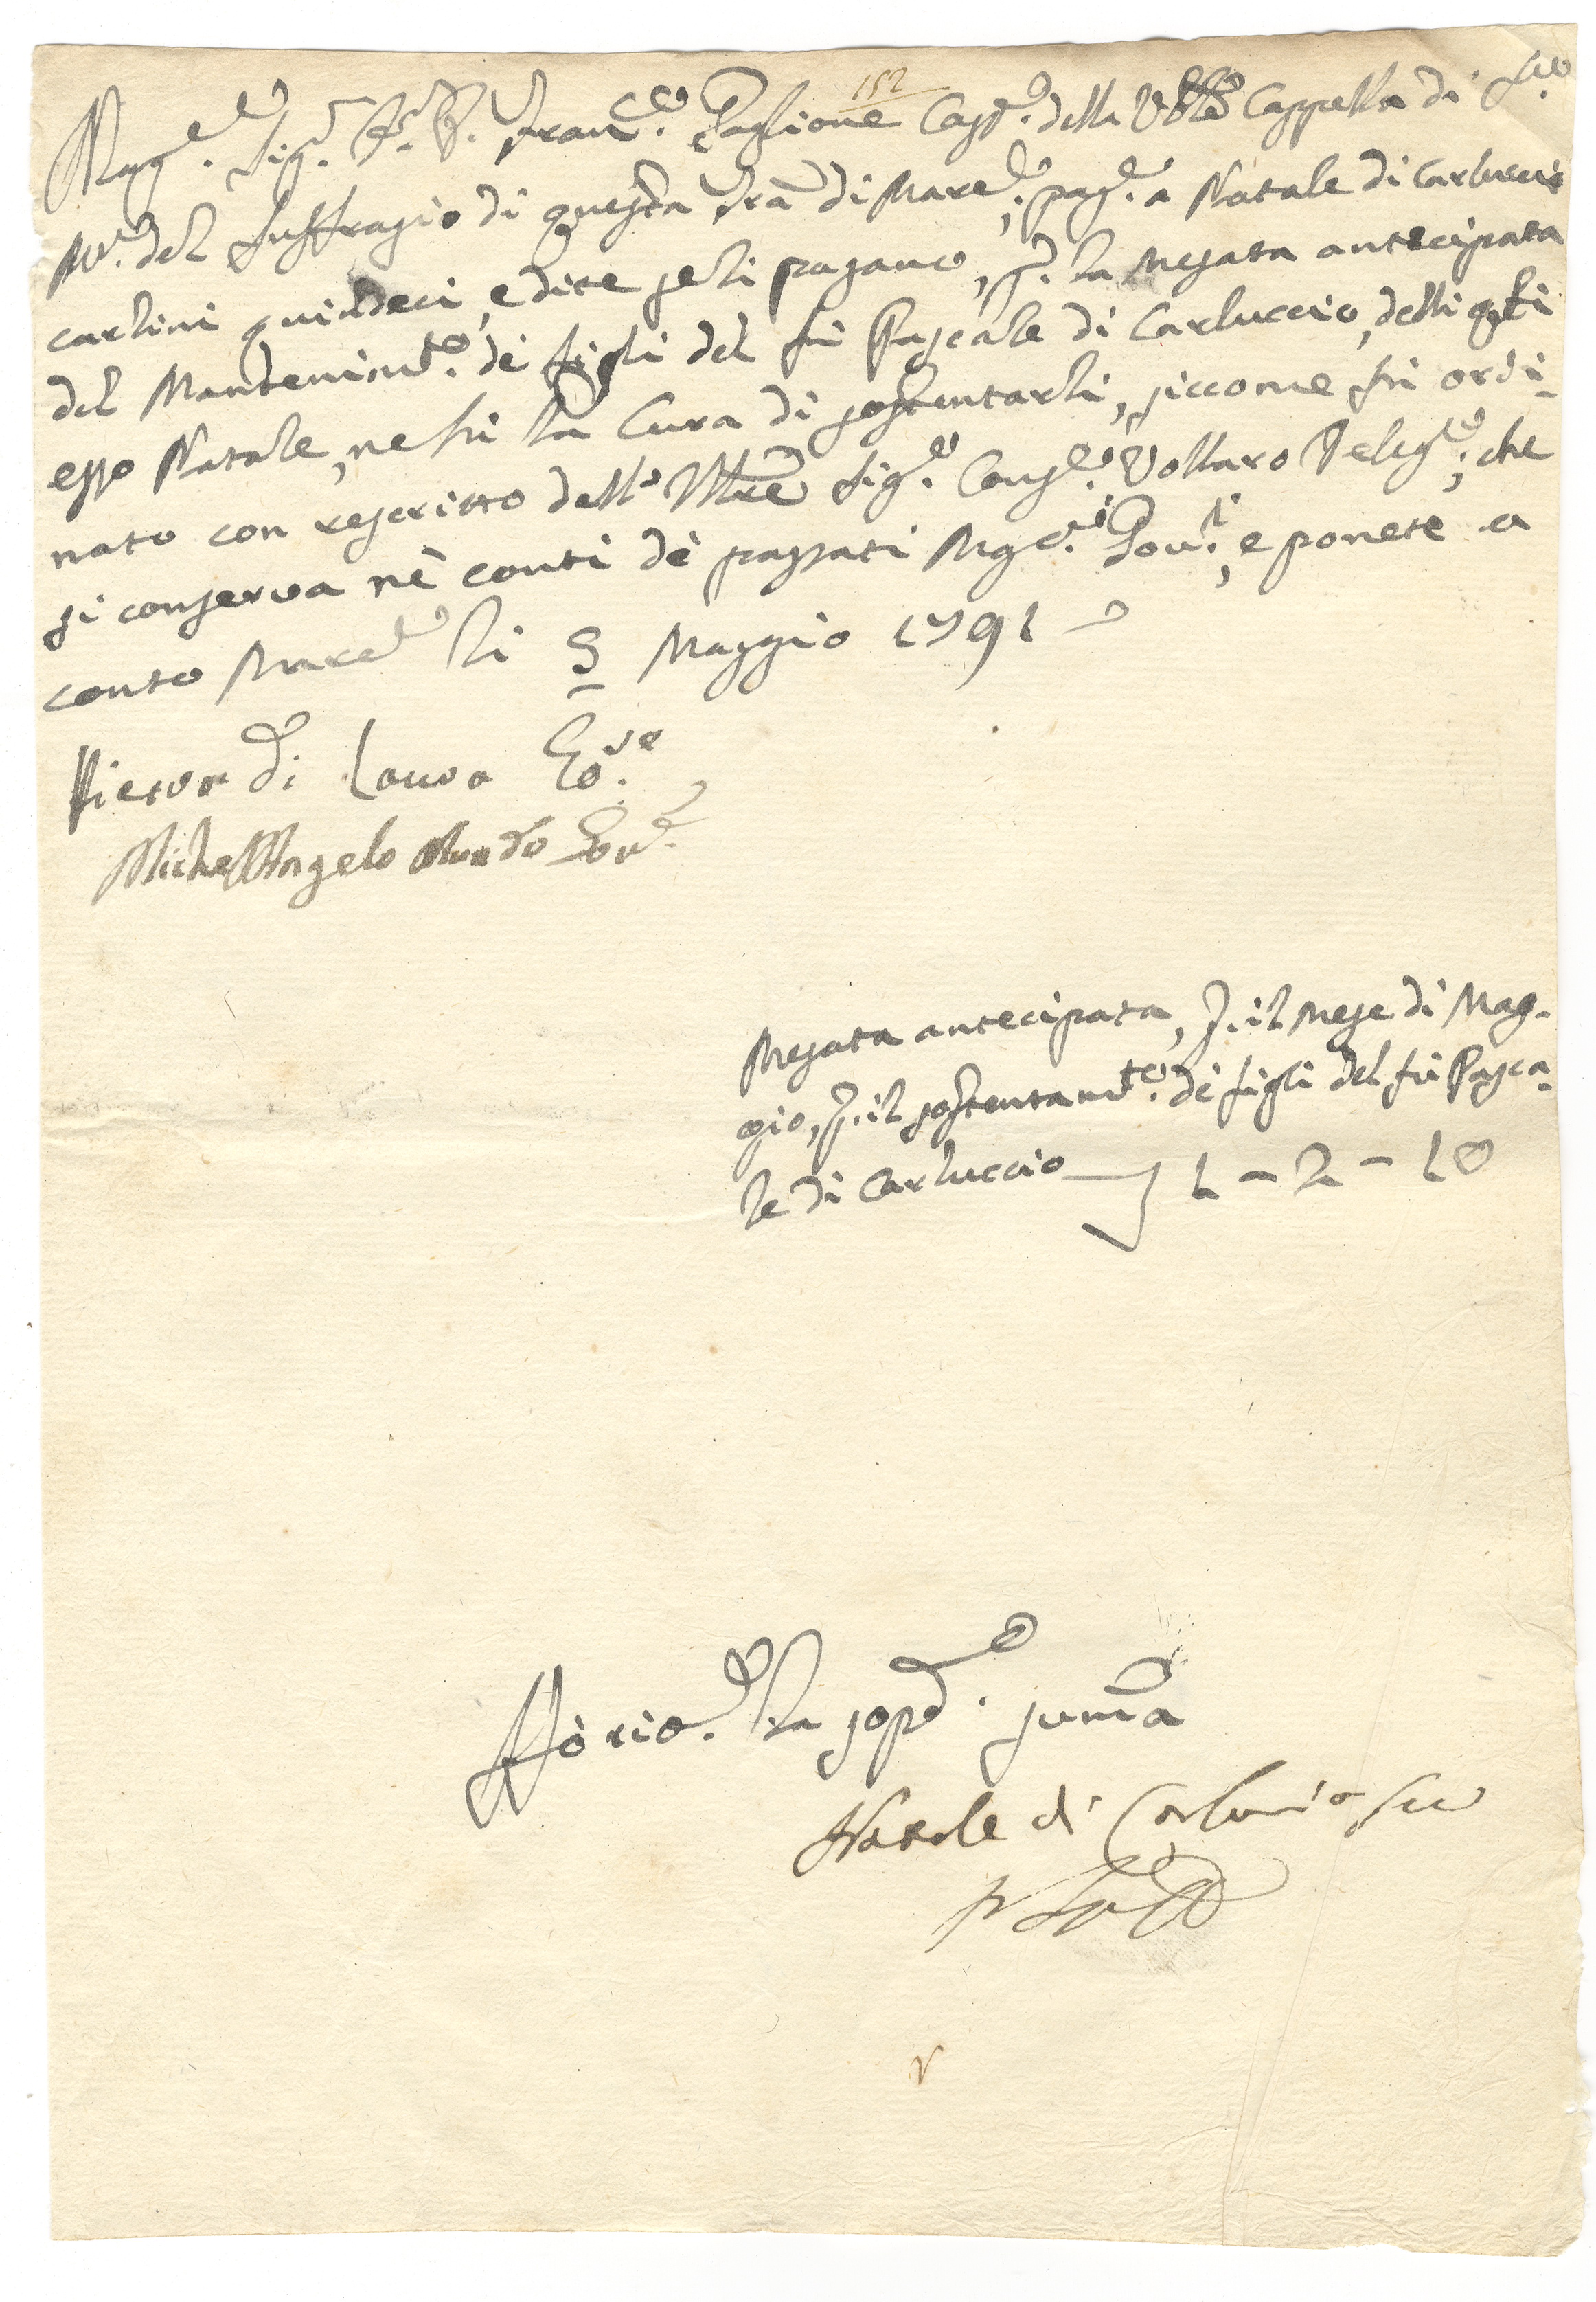 152
Mag.co Sig.r D. Fran.co Paglione Cass.o della Ven.le Cappella di S.
M.a del Suffragio di questa Trã di Marc.o, pag.e a Natale di Carluccio
carlini quindeci, e dite se li pagano, p. la mesata antecipata
del Mantenim.to de figli del fù Pascale di Carluccio, delli q.li
esso Natale, ne hà la Cura di sostentarli, siccome fù ordi-
nato con rescritto dell' Ill.re Sig.r Cons.o Vollaro Deleg.to, che
si conserva nè conti dè passati Mg.ci Gov.i, e ponete a
conto Marc.o li 5 Maggio 1791
di Lauro Go.re
MichelAngelo Gov.e
Mesata antecipata, p. il mese di Mag-
gio, p. il sostentam.to dè figli del fù Pasca-
le di Carluccio 1 - 2 - 10
Hò ric.o la sop.a sumã
Natale di Carluccio